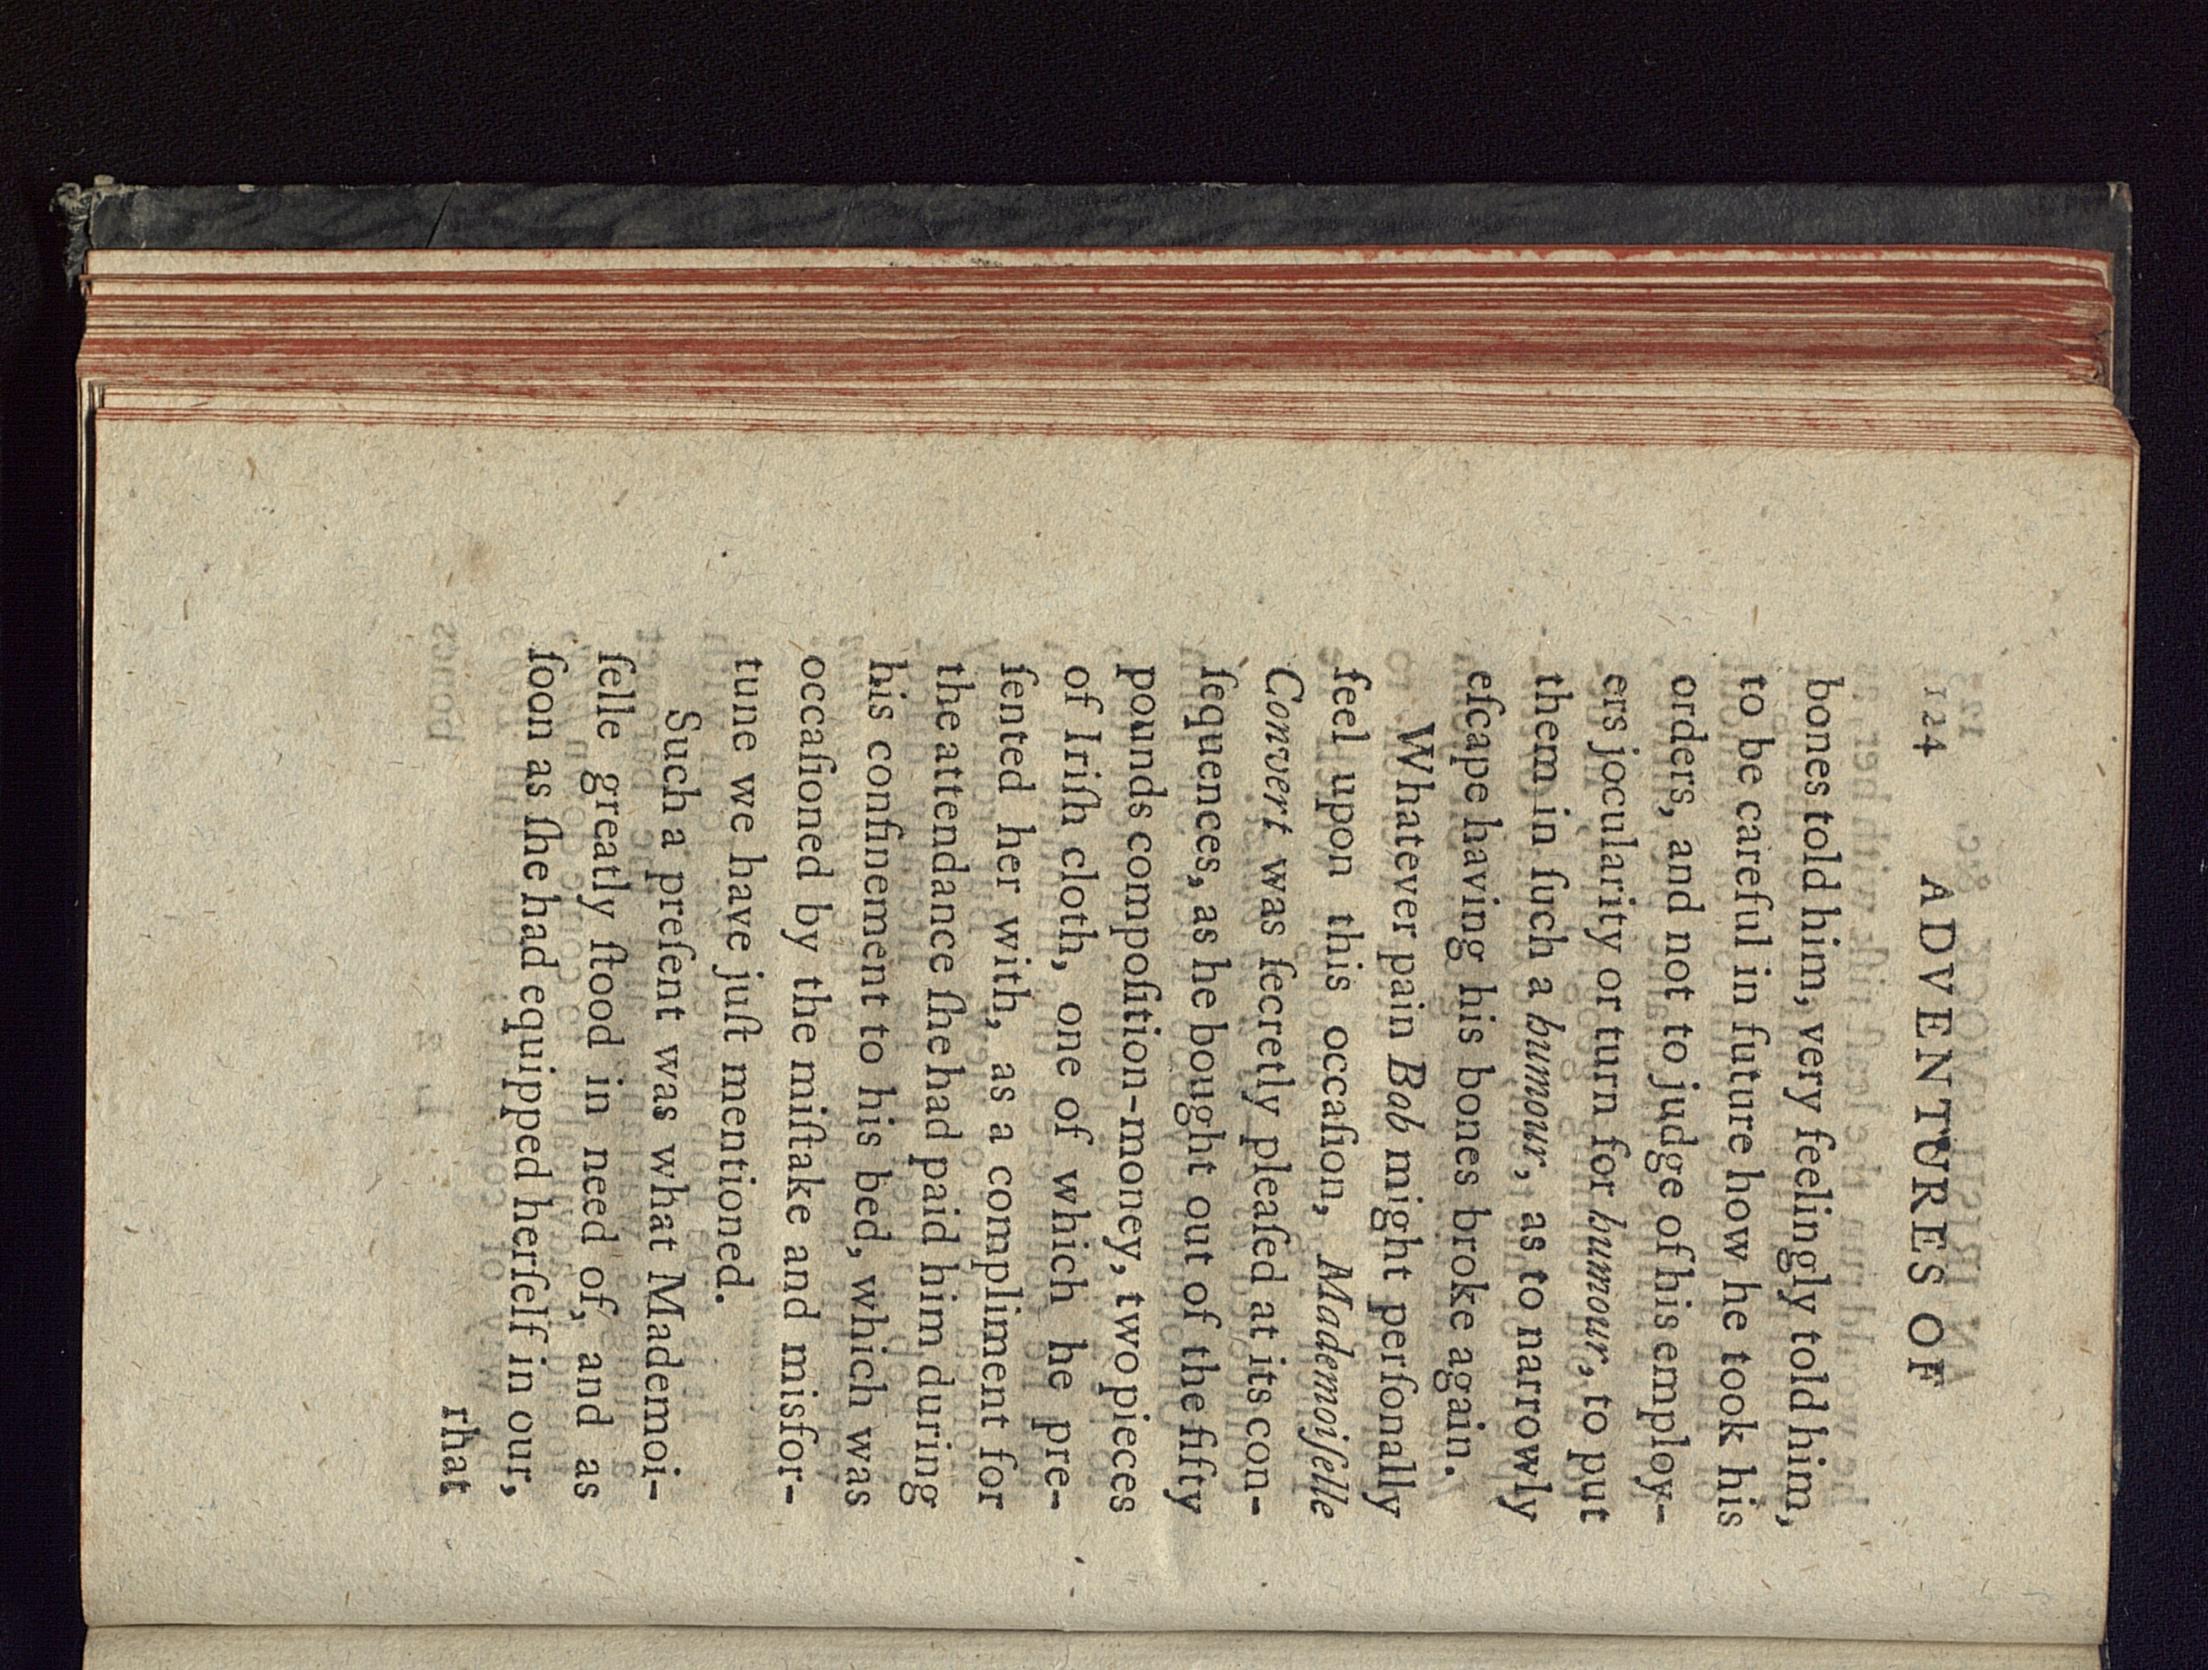 124 ADVENTURES OF
bones told him, very feelingly told him,
to be careful in future how he took his
orders, and not to judge of his employ-
ers jocularity or turn for humour, to put
them in ſuch a humour, as to narrowly
eſcape having his bones broke again.
Whatever pain Bob might perſonally
feel upon this occaſion, Mademoiſelle
Convert was ſecretly pleaſed at its con-
ſequences, as he bought out of the fifty
pounds compoſition-money, two pieces
of Iriſh cloth, one of which he pre-
ſented her with, as a compliment for
the attendance ſhe had paid him during
his confinement to his bed, which was
occaſioned by the miſtake and misfor-
tune we have juſt mentioned.
Such a preſent was what Mademoi-
ſelle greatly ſtood in need of, and as
ſoon as ſhe had equipped herſelf in our,
rhat